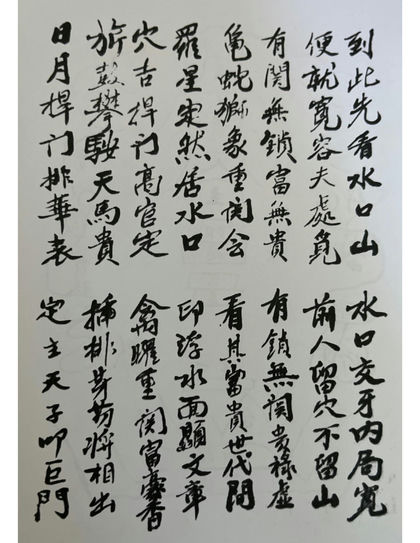 到此先看水口山 水口交牙内局寬
便就寬容夫處覓 前人留穴不留山
有関無鎖富無貴 有鎖無関貴祿虛
亀蛇獅象重関会 看其富貴世代間
羅星定然居水口 印浮水面顯文章
穴吉捍门高官定 禽曜重関富豪香
旂鼓攀鞍天馬貴 插排笏將相出
日月捍门排華表 定主天子叩巨門